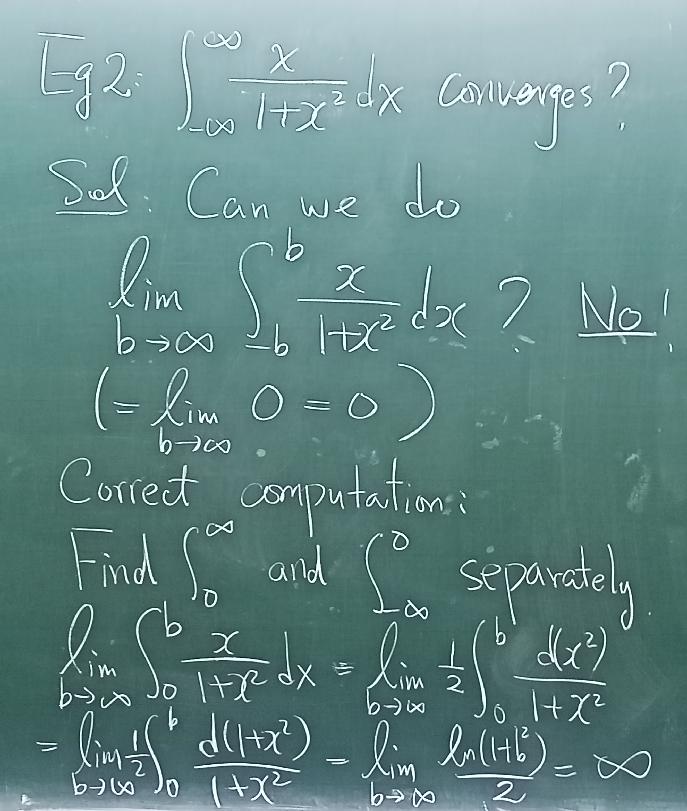 Eg 2: ∫_{-∞}^{∞} x/(1+x²) dx converges?
Sol: Can we do
lim_{b→∞} ∫_{-b}^{b} x/(1+x²) dx ? No!
(= lim_{b→∞} 0 = 0)
Correct computation:
Find ∫_0^∞ and ∫_{-∞}^0 separately.
lim_{b→∞} ∫_0^b x/(1+x²) dx = lim_{b→∞} 1/2 ∫_0^b d(x²)/(1+x²)
= lim_{b→∞} 1/2 ∫_0^b d(1+x²)/(1+x²) = lim_{b→∞} ln(1+b²)/2 = ∞